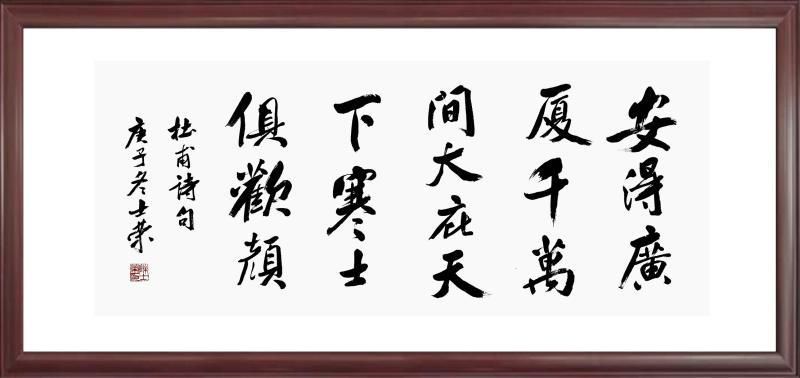 安得廣
厦千萬
間大庇天
下寒士
俱歡顔
杜甫詩句
庚子冬士榮